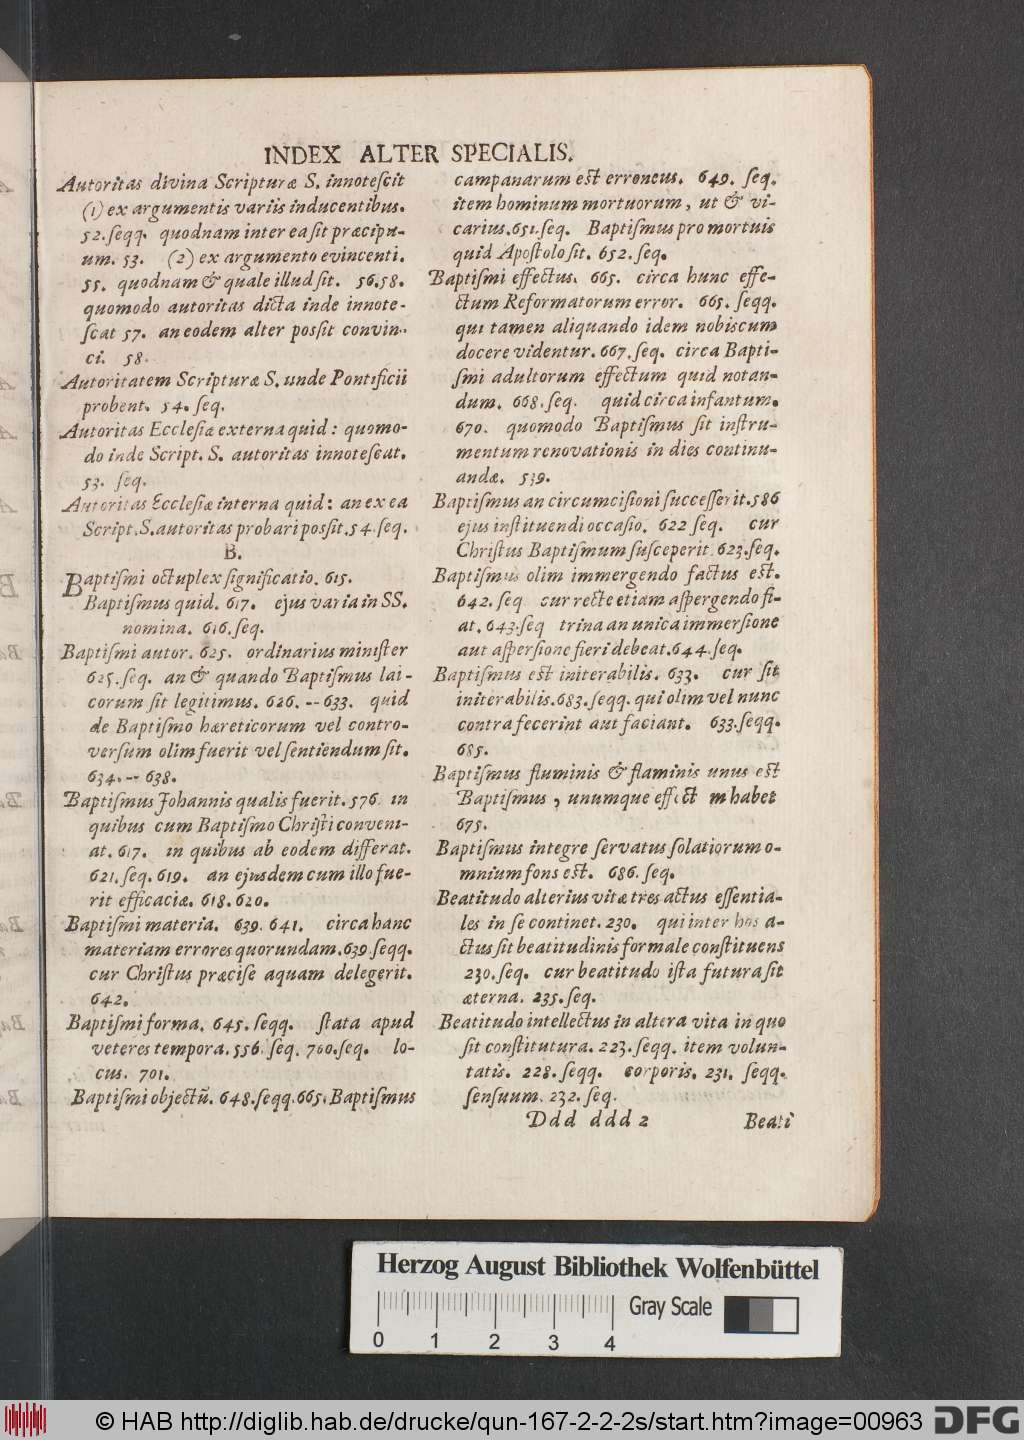 INDEX ALTER SPECIALIS.
Autoritas divina Scripturæ S. innoteſcit
(1) ex argumentis variis inducentibus.
52. ſeqq. quodnam inter ea ſit præcipu-
um. 53. (2) ex argumento evincenti.
55. quodnam & quale illud ſit. 56.58.
quomodo autoritas dicta inde innote-
ſcat 57. an eodem alter poſſit convin-
ci. 58.
Autoritatem Scripturæ S. unde Pontificii
probent. 54. ſeq.
Autoritas Eccleſiæ externa quid: quomo-
do inde Script. S. autoritas innoteſcat.
53. ſeq.
Autoritas Eccleſiæ interna quid: an ex ea
Script. S. autoritas probari poſſit. 54. ſeq.
B.
Baptiſmi octuplex ſignificatio. 615.
Baptiſmus quid. 617. ejus varia in SS.
nomina. 616. ſeq.
Baptiſmi autor. 625. ordinarius miniſter
625. ſeq. an & quando Baptiſmus lai-
corum ſit legitimus. 626. -- 633. quid
de Baptiſmo hæreticorum vel contro-
verſum olim fuerit vel ſentiendum ſit.
634. -- 638.
Baptiſmus Johannis qualis fuerit. 576. in
quibus cum Baptiſmo Chriſti conveni-
at. 617. in quibus ab eodem differat.
621. ſeq. 619. an ejusdem cum illo fue-
rit efficaciæ. 618. 620.
Baptiſmi materia. 639. 641. circa hanc
materiam errores quorundam. 639. ſeqq.
cur Chriſtus præciſe aquam delegerit.
642.
Baptiſmi forma. 645. ſeqq. ſtata apud
veteres tempora. 556. ſeq. 700. ſeq. lo-
cus. 701.
Baptiſmi objectũ. 648. ſeqq. 665. Baptiſmus
campanarum eſt erroneus. 649. ſeq.
item hominum mortuorum, ut & vi-
carius. 651. ſeq. Baptiſmus pro mortuis
quid Apoſtolo ſit. 652. ſeq.
Baptiſmi effectus. 665. circa hunc effe-
ctum Reformatorum error. 665. ſeqq.
qui tamen aliquando idem nobiscum
docere videntur. 667. ſeq. circa Bapti-
ſmi adultorum effectum quid notan-
dum. 668. ſeq. quid circa infantum.
670. quomodo Baptiſmus ſit inſtru-
mentum renovationis in dies continu-
andæ. 539.
Baptiſmus an circumciſioni ſucceſſerit. 586
ejus inſtituendi occaſio. 622 ſeq. cur
Chriſtus Baptiſmum ſuſceperit. 623. ſeq.
Baptiſmus olim immergendo factus eſt.
642. ſeq cur recte etiam aſpergendo fi-
at. 643. ſeq trina an unica immerſione
aut aſperſione fieri debeat. 644. ſeq.
Baptiſmus eſt initerabilis. 633. cur ſit
initerabilis. 683. ſeqq. qui olim vel nunc
contra fecerint aut faciant. 633. ſeqq.
685.
Baptiſmus fluminis & flaminis unus eſt
Baptiſmus, unumque effectum habet
675.
Baptiſmus integre ſervatus ſolatiorum o-
mnium fons eſt. 686. ſeq.
Beatitudo alterius vitæ tres actus eſſentia-
les in ſe continet. 230. qui inter hos a-
ctus ſit beatitudinis formale conſtituens
230. ſeq. cur beatitudo iſta futura ſit
æterna. 235. ſeq.
Beatitudo intellectus in altera vita in quo
ſit conſtitutura. 223. ſeqq. item volun-
tatis. 228. ſeqq. corporis. 231. ſeqq.
ſenſuum. 232. ſeq.
Ddd ddd 2 Beati
Herzog August Bibliothek Wolfenbüttel
Gray Scale
0 1 2 3 4
© HAB http://diglib.hab.de/drucke/qun-167-2-2-2s/start.htm?image=00963 DFG